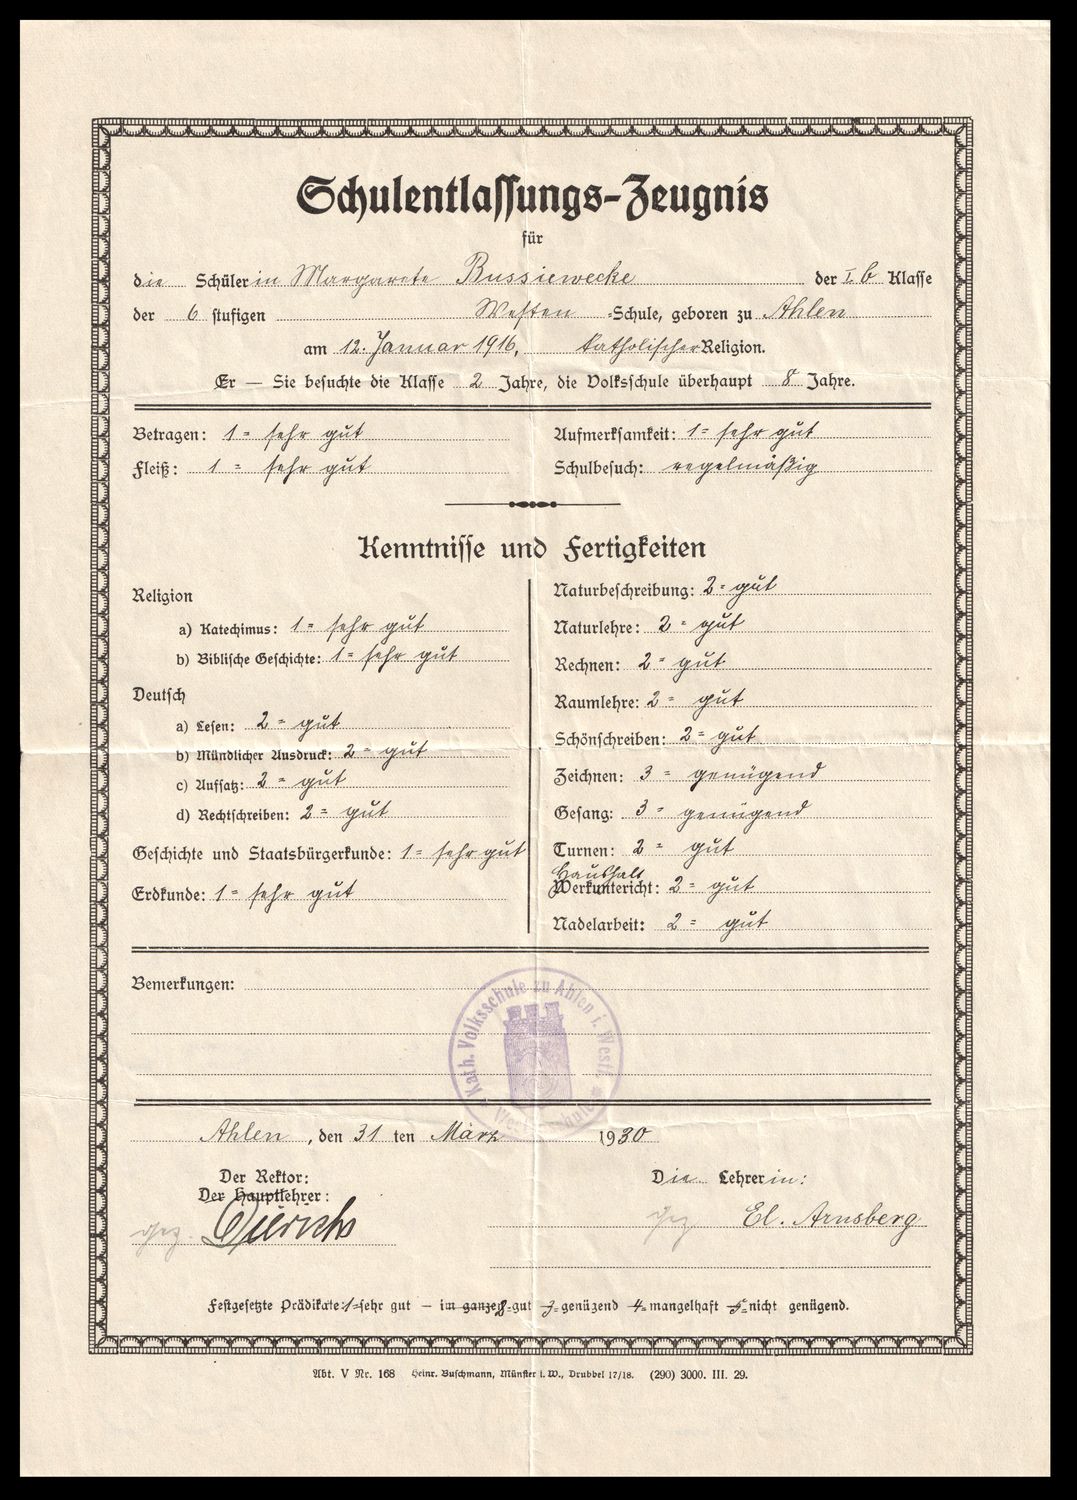 Schulentlassungs-Zeugnis
für
die Schülerin Margarete Bussiewecke der I b Klasse
der 6 stufigen Westen -Schule, geboren zu Ahlen
am 12. Januar 1916, katholischer Religion.
Er — Sie besuchte die Klasse 2 Jahre, die Volksschule überhaupt 8 Jahre.
Betragen: 1 = sehr gut
Fleiß: 1 = sehr gut
Aufmerksamkeit: 1 = sehr gut
Schulbesuch: regelmäßig
Kenntnisse und Fertigkeiten
Religion
a) Katechimus: 1 = sehr gut
b) Biblische Geschichte: 1 = sehr gut
Deutsch
a) Lesen: 2 = gut
b) Mündlicher Ausdruck: 2 = gut
c) Aufsatz: 2 = gut
d) Rechtschreiben: 2 = gut
Geschichte und Staatsbürgerkunde: 1 = sehr gut
Erdkunde: 1 = sehr gut
Naturbeschreibung: 2 = gut
Naturlehre: 2 = gut
Rechnen: 2 = gut
Raumlehre: 2 = gut
Schönschreiben: 2 = gut
Zeichnen: 3 = genügend
Gesang: 3 = genügend
Turnen: 2 = gut
Haushalt
Werkunterricht: 2 = gut
Nadelarbeit: 2 = gut
Bemerkungen:
Kath. Volksschule zu Ahlen i. Westf.
Ahlen, den 31 ten März 1930
Der Rektor:
Der Hauptlehrer:
gez. Dierichs
Die Lehrerin:
gez El. Arnsberg
Festgesetzte Prädikate: 1=sehr gut — im ganzen 2=gut 3=genügend 4=mangelhaft 5=nicht genügend.
Abt. V Nr. 168 Heinr. Buschmann, Münster i. W., Drubbel 17/18. (290) 3000. III. 29.